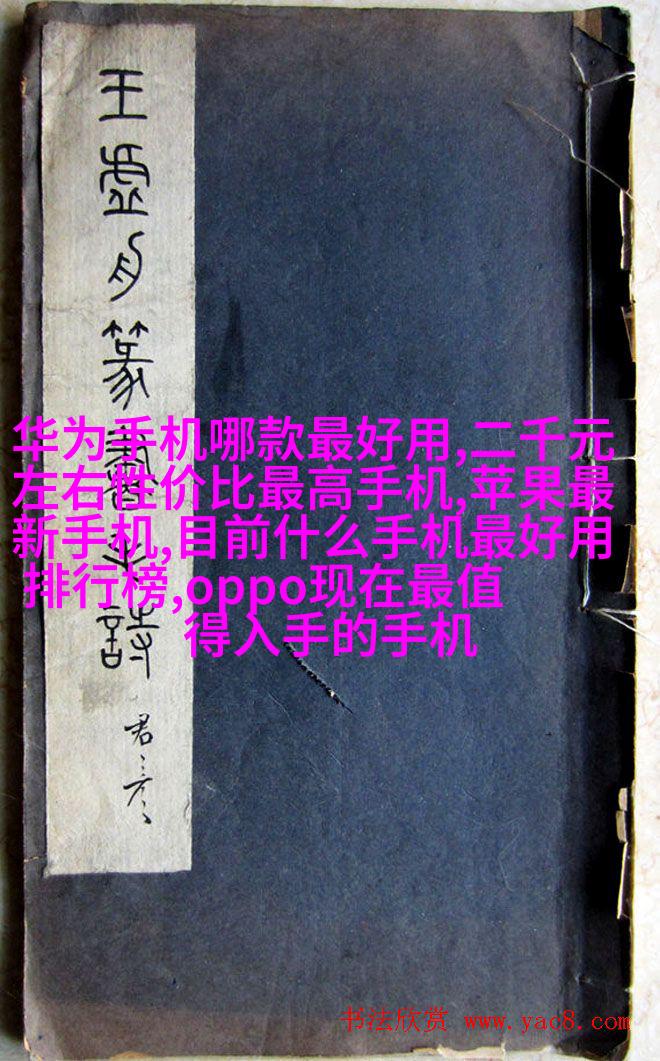 王虛舟篆書詩
君彥
华为手机哪款最好用,二千元
左右性价比最高手机,苹果最
新手机,目前什么手机最好用
排行榜,oppo现在最值
得入手的手机
书法欣赏 www.yac8.com